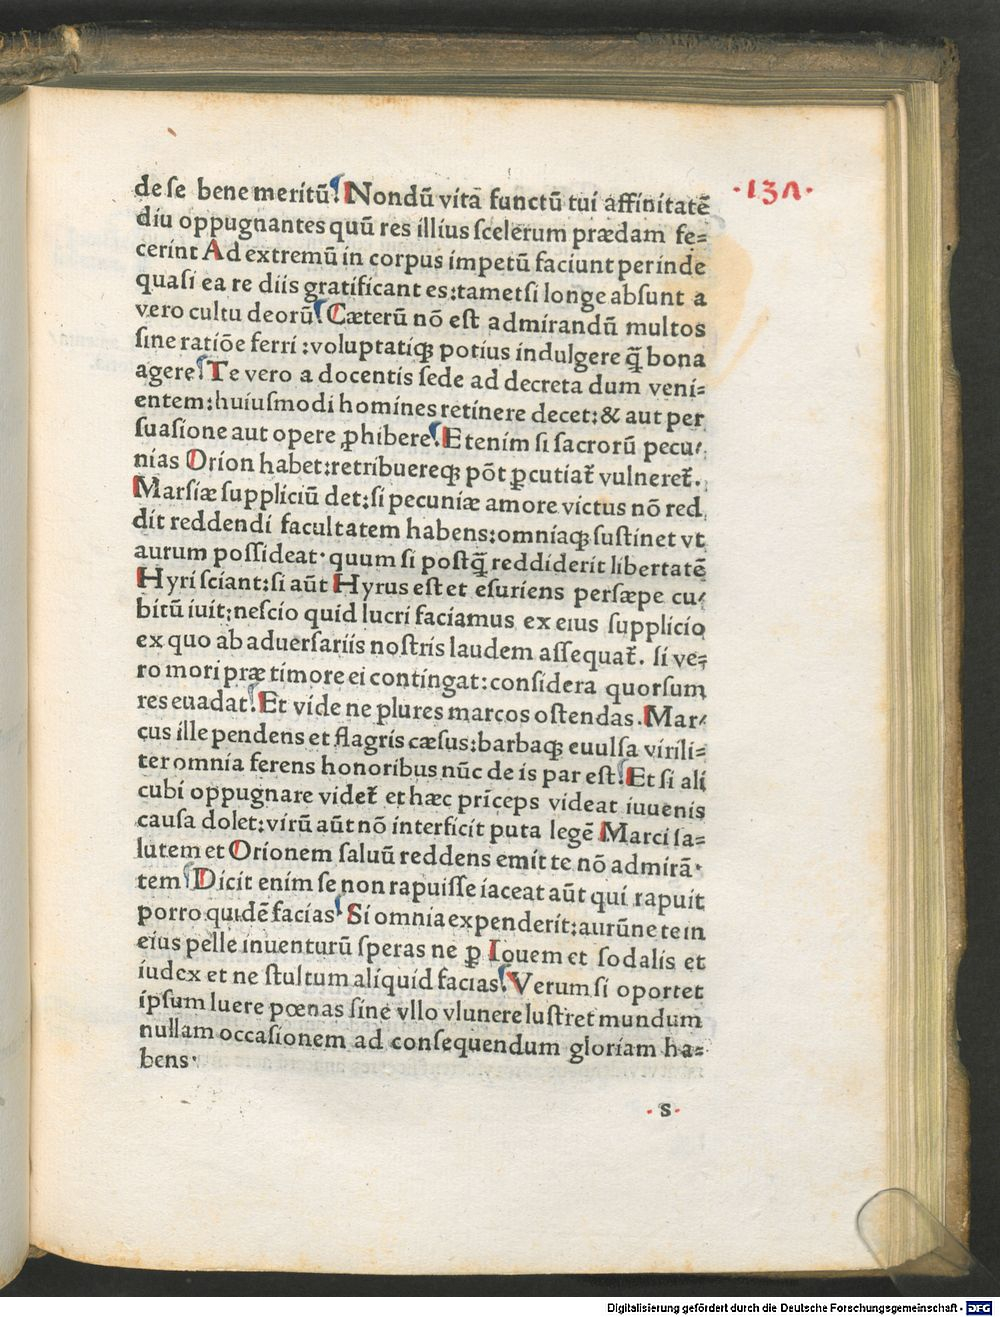 ·137·
de se bene meritū. Nondū vita functū tui affinitatē
diu oppugnantes quū res illius scelerum prædam fe=
cerint Ad extremū in corpus impetū faciunt perinde
quasi ea re diis gratificant es:tametsi longe absunt a
vero cultu deorū. Cæterū nō est admirandū multos
sine ratiōe ferri :voluptatiqꝫ potius indulgere q̄ bona
agere. Te vero a docentis sede ad decreta dum veni=
entem:huiusmodi homines retinere decet:& aut per
suasione aut opere ꝓhibere. Etenim si sacrorū pecu/
nias Orion habet:retribuereqꝫ pōt ꝑcutiat᷑ vulneret᷑.
Marsiæ suppliciū det:si pecuniæ amore victus nō red
dit reddendi facultatem habens:omniaqꝫ sustinet vt
aurum possideat· quum si postq̄ reddiderit libertatē
Hyri sciant:si aūt Hyrus est et esuriens persæpe cu/
bitū iuit:nescio quid lucri faciamus ex eius supplicio
ex quo ab aduersariis nostris laudem assequat᷑. si ve=
ro mori præ timore ei contingat:considera quorsum
res euadat. Et vide ne plures marcos ostendas. Mar/
cus ille pendens et flagris cæsus:barbaqꝫ euulsa virili=
ter omnia ferens honoribus nūc de is par est. Et si ali
cubi oppugnare videt᷑ et hæc prīceps videat iuuenis
causa dolet:virū aūt nō interficit puta legē Marci sa=
lutem et Orionem saluū reddens emit te nō admirā·
tem. Dicit enim se non rapuisse iaceat aūt qui rapuit
porro quidē facias. Si omnia expenderit:aurūne te in
eius pelle inuenturū speras ne ꝑ Iouem et sodalis et
iudex et ne stultum aliquid facias. Verum si oportet
ipsum luere pœnas sine vllo vlunere lustret mundum
nullam occasionem ad consequendum gloriam ha=
bens·
·s·
Digitalisierung gefördert durch die Deutsche Forschungsgemeinschaft - DFG